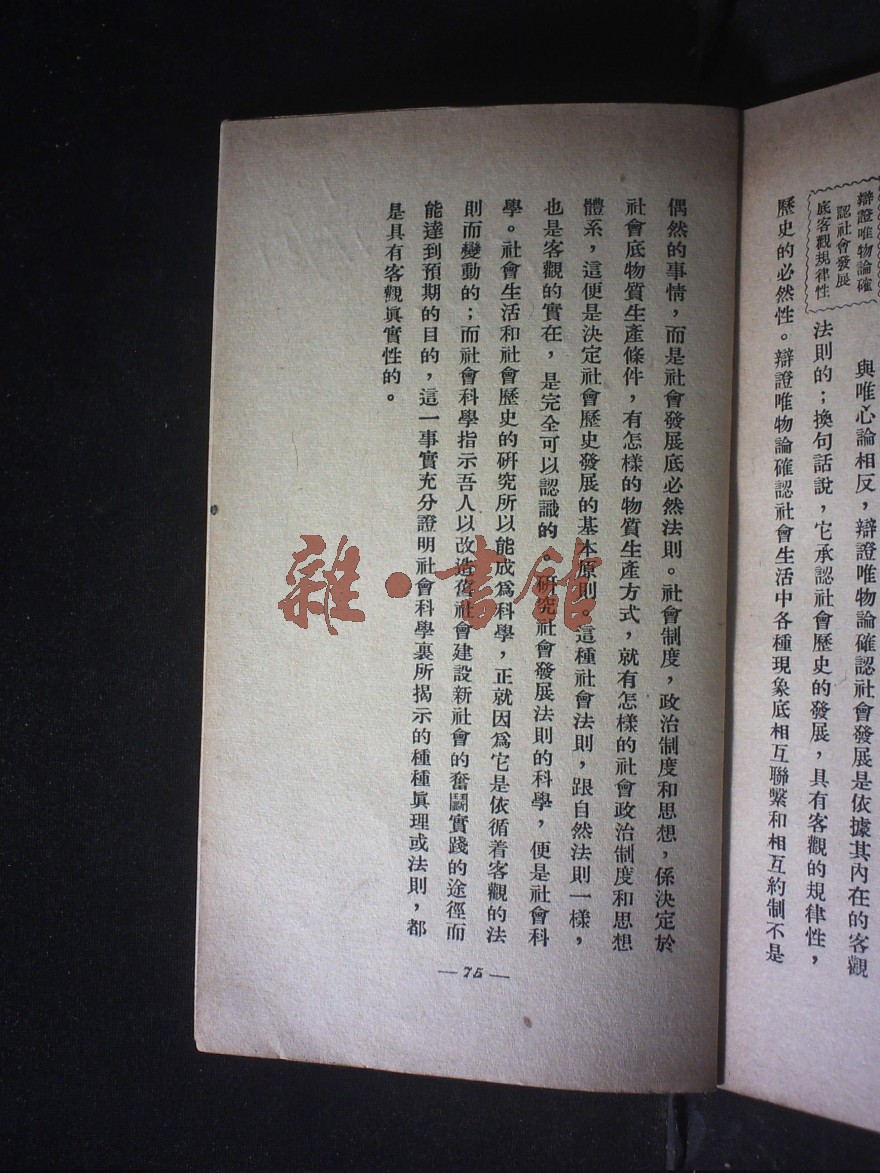 辯證唯物論確
認社會發展
底客觀規律性
與唯心論相反，辯證唯物論確認社會發展是依據其內在的客觀
法則的；換句話說，它承認社會歷史的發展，具有客觀的規律性，
歷史的必然性。辯證唯物論確認社會生活中各種現象底相互聯繫和相互約制不是
偶然的事情，而是社會發展底必然法則。社會制度，政治制度和思想，係決定於
社會底物質生產條件，有怎樣的物質生產方式，就有怎樣的社會政治制度和思想
體系，這便是決定社會歷史發展的基本原則。這種社會法則，跟自然法則一樣，
也是客觀的實在，是完全可以認識的。研究社會發展法則的科學，便是社會科
學。社會生活和社會歷史的研究所以能成爲科學，正就因爲它是依循着客觀的法
則而變動的；而社會科學指示吾人以改造舊社會建設新社會的奮鬭實踐的途徑而
能達到預期的目的，這一事實充分證明社會科學裏所揭示的種種眞理或法則，都
是具有客觀眞實性的。
—75—
雜·書館